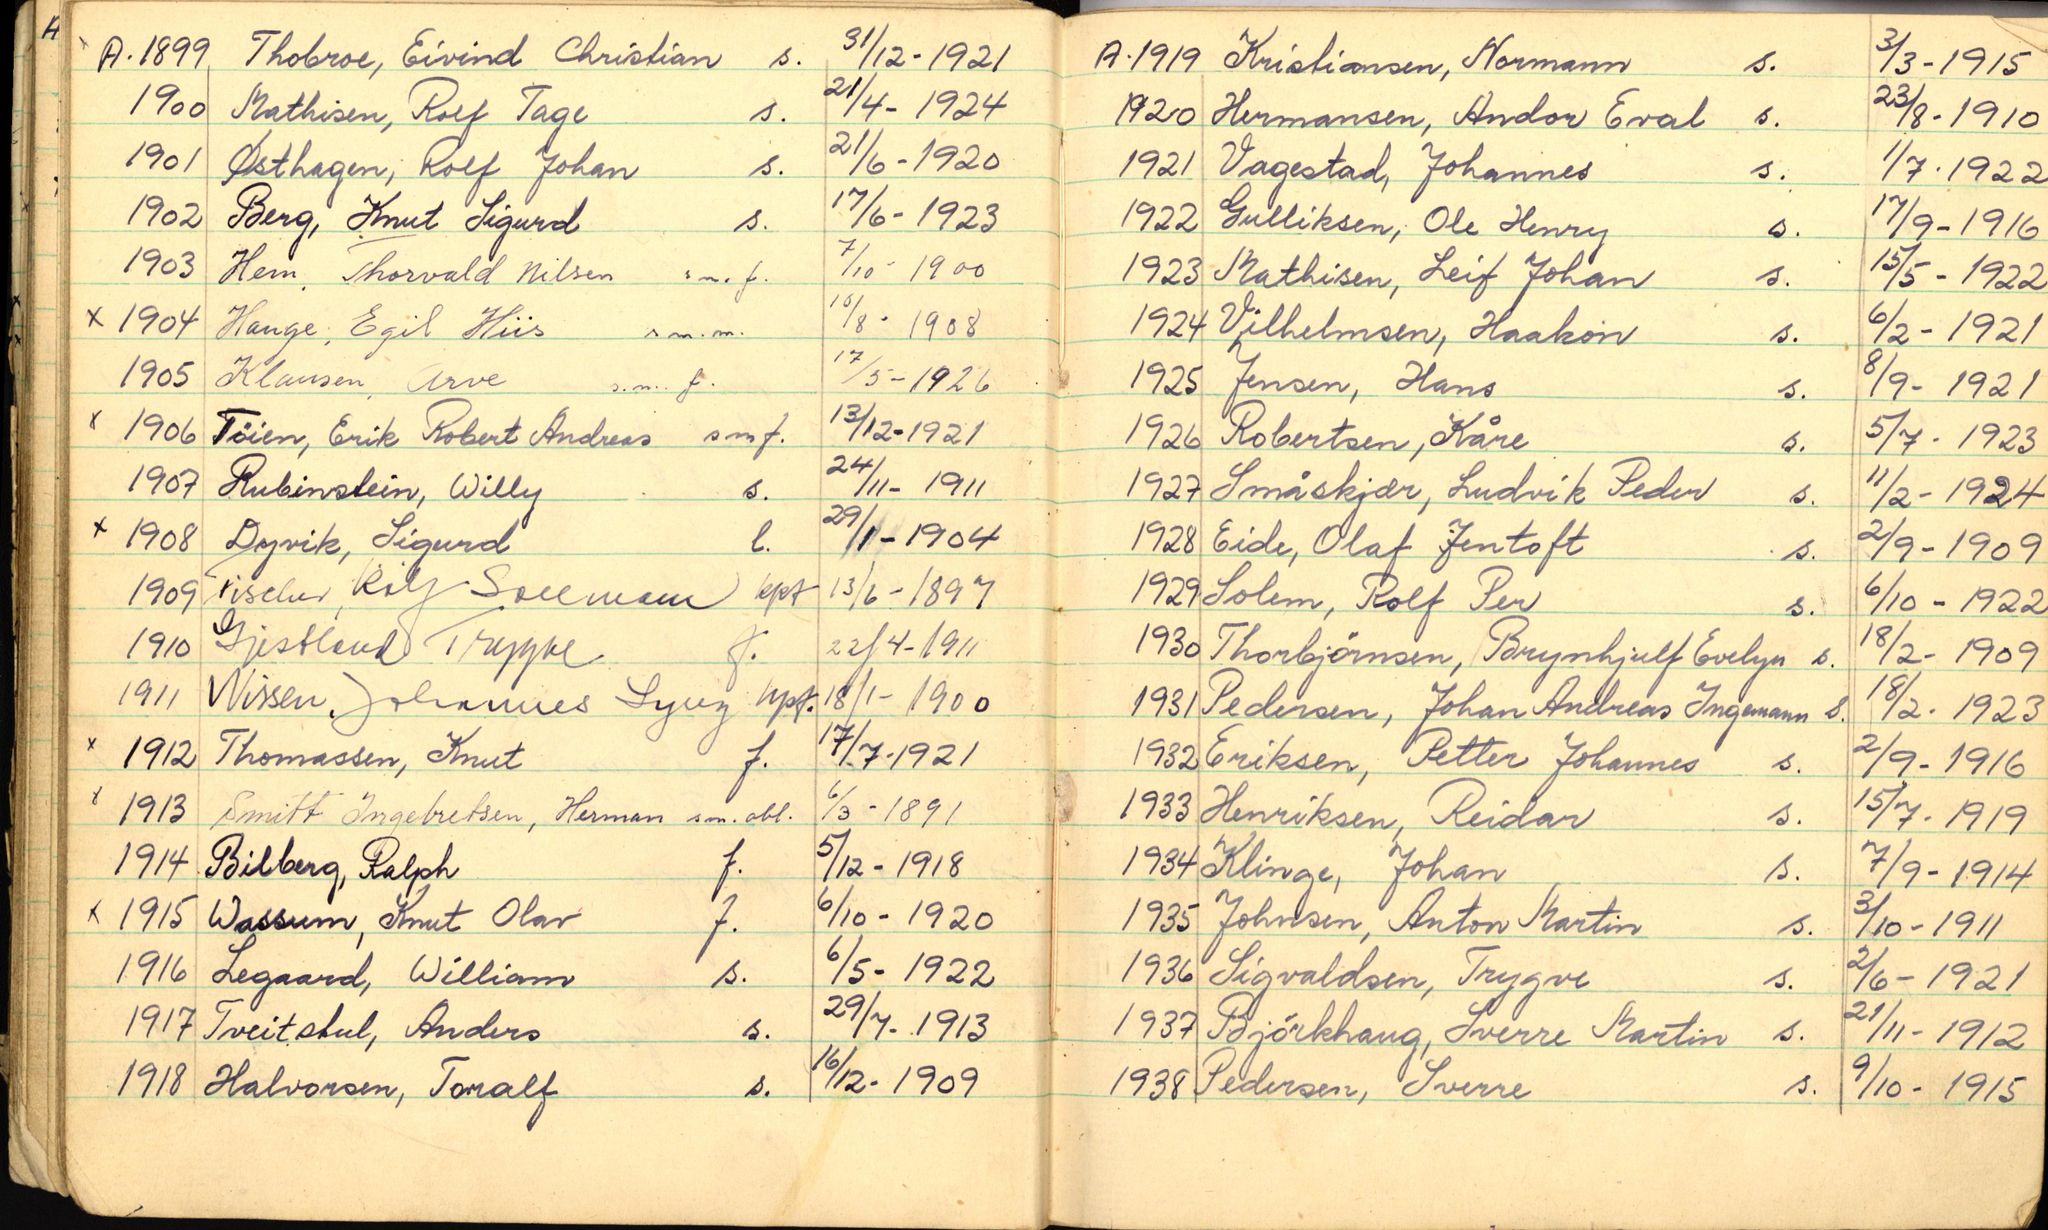 A. 1899 Thobroe, Eivind Christian s. 31/12 - 1921
1900 Mathisen, Rolf Tage s. 21/4 - 1924
1901 Østhagen, Rolf Johan s. 21/6 - 1920
1902 Berg, Knut Sigurd s. 17/6 - 1923
1903 Hem, Thorvald Nilsen s.m.f. 7/10 - 1900
x 1904 Hauge, Egil Hiis s.m.m. 10/8 - 1908
1905 Klausen, Arve s.m.f. 17/5 - 1926
x 1906 Töien, Erik Robert Andreas smf. 13/12 - 1921
1907 Rubinstein, Willy s. 24/11 - 1911
x 1908 Dyvik, Sigurd l. 29/1 - 1904
1909 Fischer, Rolf kpt 13/6 - 1897
1910 Gjestland Trygve f. 22/4 - 1911
1911 Nissen, Johannes Lyng kpt. 18/1 - 1900
x 1912 Thomassen, Knut f. 17/7 - 1921
x 1913 Smitt Ingebretsen, Herman sm. obl. 6/3 - 1891
1914 Bilberg, Ralph f. 5/12 - 1918
x 1915 Wassum, Knut Olav f. 6/10 - 1920
1916 Legaard, William s. 6/5 - 1922
1917 Tveitstul, Anders s. 29/7 - 1913
1918 Halvorsen, Toralf s. 16/12 - 1909
A. 1919 Kristiansen, Normann s. 3/3 - 1915
1920 Hermansen, Andor Eval s. 23/8 - 1910
1921 Vagestad, Johannes s. 1/7 - 1922
1922 Gulliksen, Ole Henry s. 17/9 - 1916
1923 Mathisen, Leif Johan s. 15/5 - 1922
1924 Vilhelmsen, Haakon s. 6/2 - 1921
1925 Jensen, Hans s. 8/9 - 1921
1926 Robertsen, Kåre s. 5/7 - 1923
1927 Småskjær, Ludvik Peder s. 11/2 - 1924
1928 Eide, Olaf Jentoft s. 2/9 - 1909
1929 Solem, Rolf Per s. 6/10 - 1922
1930 Thorbjörnsen, Brynhjulf Evelyn s. 18/2 - 1909
1931 Pedersen, Johan Andreas Ingemann s. 18/2 - 1923
1932 Eriksen, Petter Johannes s. 2/9 - 1916
1933 Henriksen, Reidar s. 15/7 - 1919
1934 Klinge, Johan s. 7/9 - 1914
1935 Johnsen, Anton Martin s. 3/10 - 1911
1936 Sigvaldsen, Trygve s. 2/6 - 1921
1937 Björkhaug, Sverre Martin s. 21/11 - 1912
1938 Pedersen, Sverre s. 9/10 - 1915